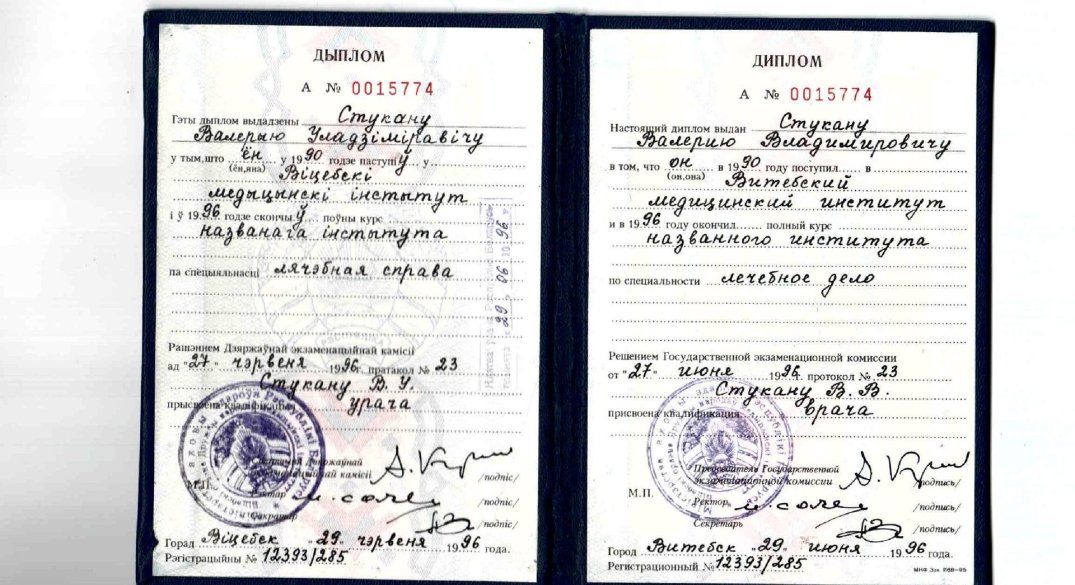 ДЫПЛОМ
А № 0015774
Гэты дыплом выдадзены Стукану
Валерыю Уладзіміравічу
у тым, што ён у 1990 годзе паступіў у
(ён,яна)
Віцебскі
медыцынскі інстытут
і ў 1996 годзе скончыў поўны курс
названага інстытута
па спецыяльнасці лячэбная справа
Рашэннем Дзяржаўнай экзаменацыйнай камісіі
ад "27" чэрвеня 1996 г. пратакол № 23
Стукану В. У.
прысвоена кваліфікацыя урача
Старшыня Дзяржаўнай
экзаменацыйнай камісіі /подпіс/
М.П. Рэктар /подпіс/
Сакратар /подпіс/
Горад Віцебск "29" чэрвеня 1996 года.
Рэгістрацыйны № 12393/285
29 06 1996
ДИПЛОМ
А № 0015774
Настоящий диплом выдан Стукану
Валерию Владимировичу
в том, что он в 1990 году поступил в
(он,она)
Витебский
медицинский институт
и в 1996 году окончил полный курс
названного института
по специальности лечебное дело
Решением Государственной экзаменационной комиссии
от "27" июня 1996 г. протокол № 23
Стукану В. В.
присвоена квалификация врача
Председатель Государственной
экзаменационной комиссии /подпись/
М.П. Ректор /подпись/
Секретарь /подпись/
Город Витебск "29" июня 1996 года.
Регистрационный № 12393/285